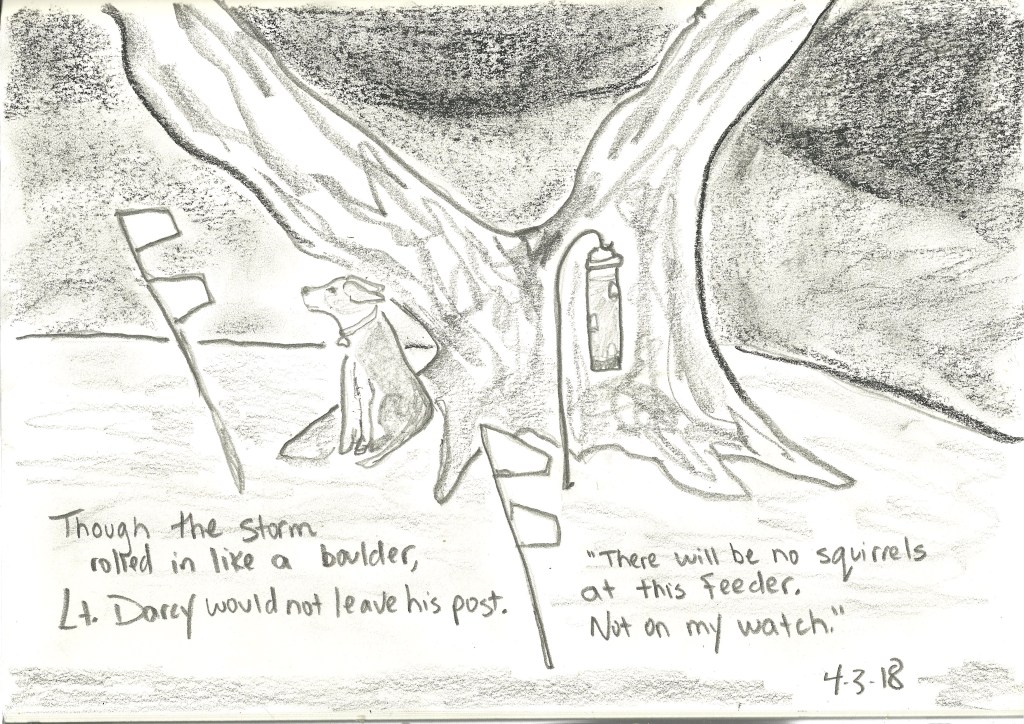 Though the storm
rolled in like a boulder,
Lt. Darcy would not leave his post.
"There will be no squirrels
at this feeder.
Not on my watch."
4-3-18